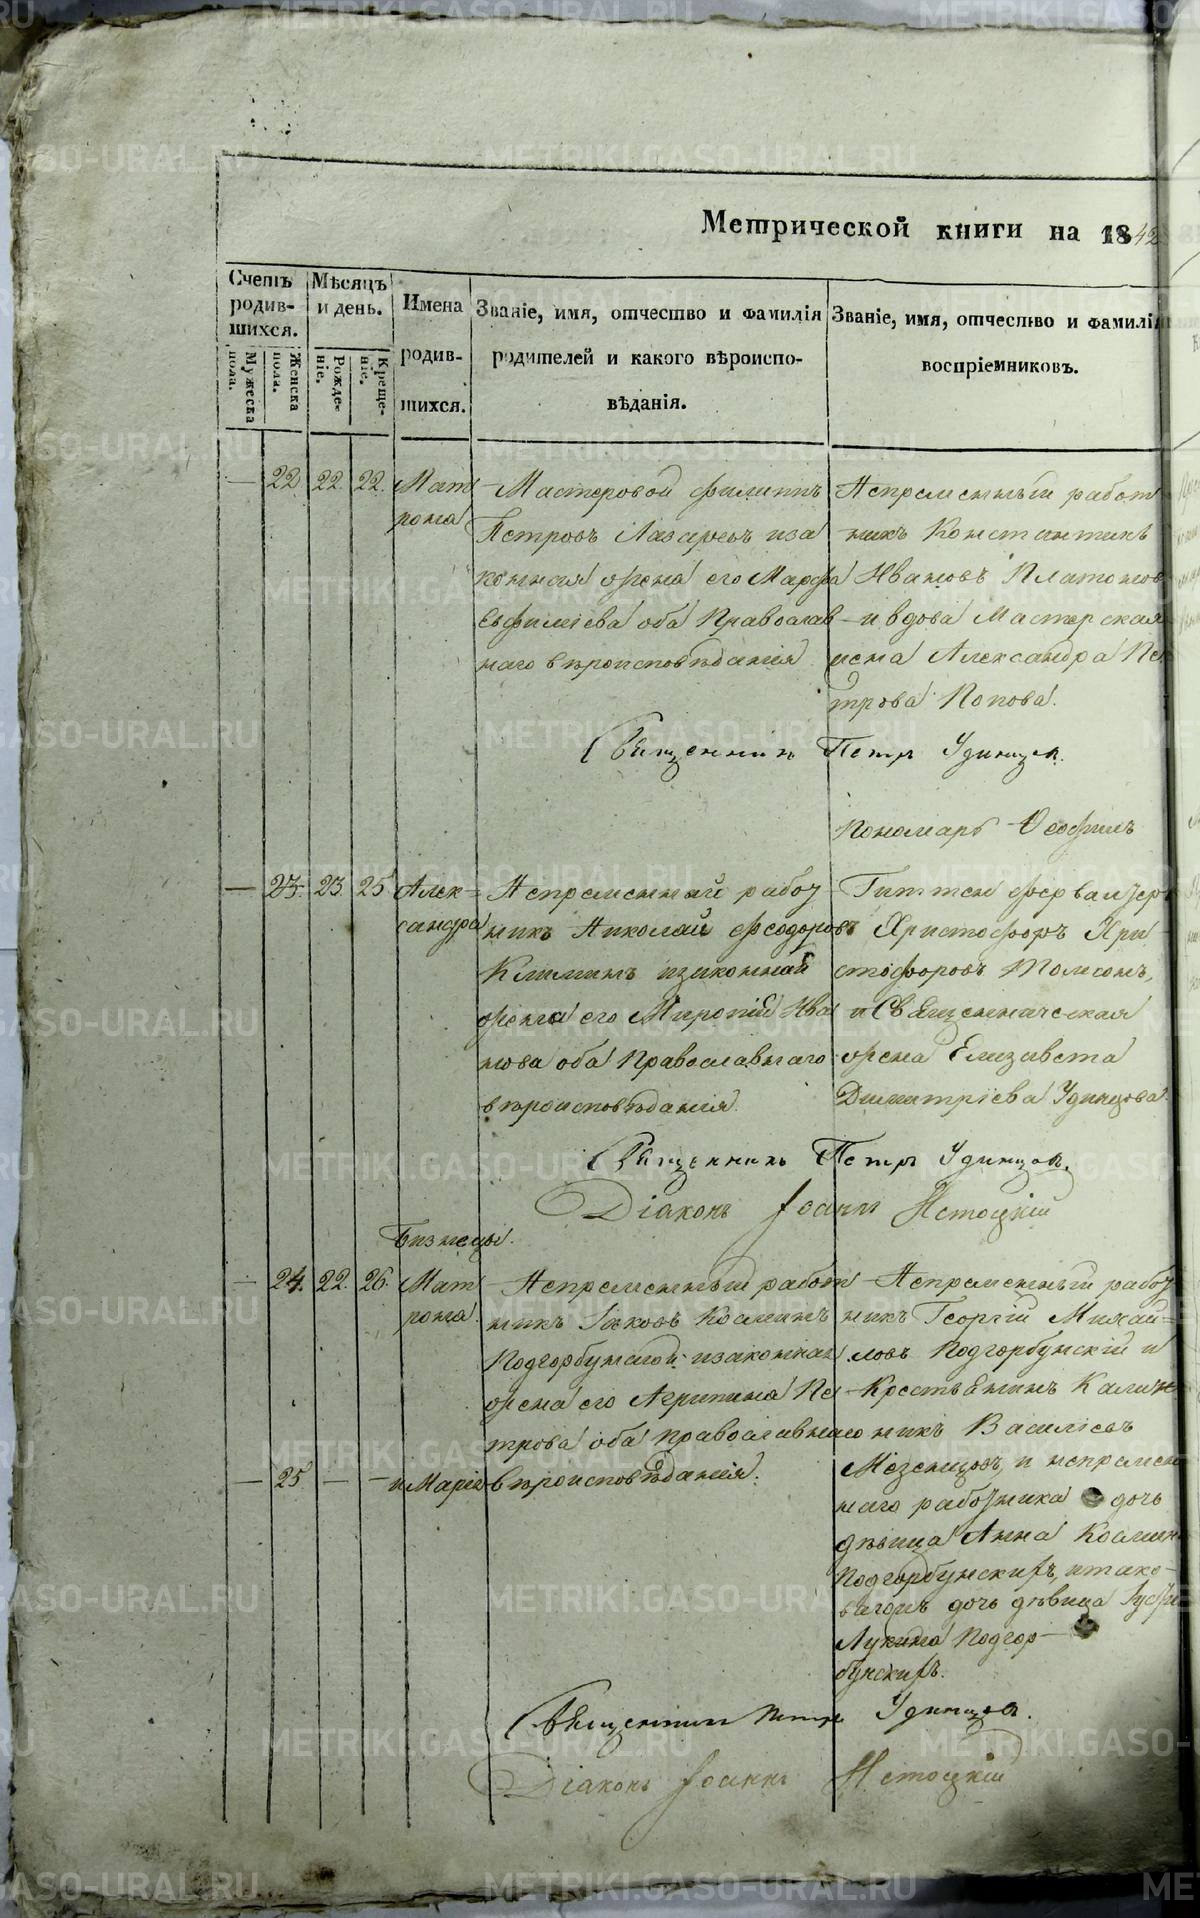 Метрической книги на 1842
Счетъ родив-шихся.
Мужеска пола.
Женска пола.
Мѣсяцъ и день.
Рожде-ніе.
Креще-ніе.
Имена родив-шихся.
Званіе, имя, отчество и фамилія
родителей и какого вѣроиспо-
вѣданія.
Званіе, имя, отчество и фамилія
воспріемниковъ.
— 22 22. 22. Мат
рона
Мастеровой Филиппъ
Петровъ Лазаревъ и за
конная жена его Марфа
Евфиміева оба Православ
наго вѣроисповѣданія
Непременный работ
никъ Константинъ
Ивановъ Платоновъ
и вдова Мастерская
жена Александра Пе
трова Попова.
Священникъ Петръ Удинцевъ.
Пономарь Ѳеофилъ
— 23. 23. 25 Алек=
сандра
Непременный работ
никъ Николай Феодоровъ
Климинъ и законная
жена его Миропія Ива
нова оба Православнаго
вѣроисповѣданія.
Гиттен фервалтеръ
Христофоръ Хри
стофоровъ Толмсонъ,
и Священническая
жена Елизавета
Димитріева Удинцова.
Священникъ Петръ Удинцовъ.
Діаконъ Іоаннъ Истоцкій
Близнецы.
— 24. 22. 26. Мат
рона
Непременный работ
никъ Іаковъ Косминъ
Подгорбунской и законная
жена его Агрипина Пе
трова оба православнаго
— 25 — — и Марія
вѣроисповѣданія.
Непременный работ
никъ Георгій Михай=
ловъ Подгорбунскій и
Крестьянинъ Калин
никъ Василіевъ
Мезенцовъ, и непремен
наго работника дочь
дѣвица Анна Космина
Подгорбунскихъ, и тако-
ваго дочь дѣвица
Лукина Подгор-
бунскихъ.
Священникъ Петръ Удинцовъ.
Діаконъ Іоаннъ Истоцкій
METRIKI.GASO-URAL.RU